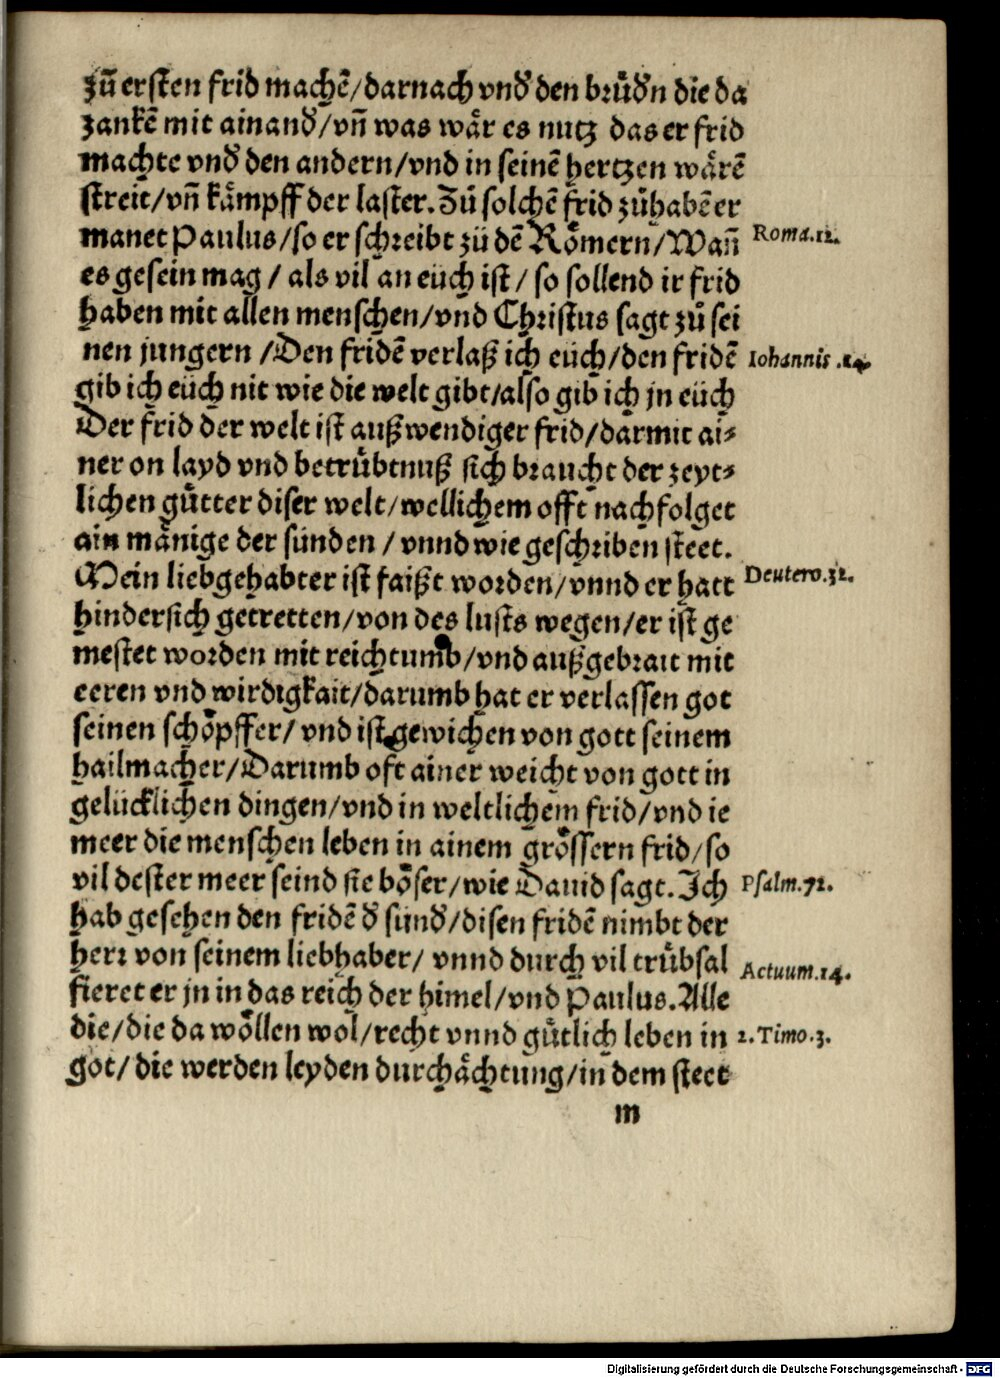 zuͦ ersten frid machē/darnach vnd' den bruͤd'n die da
zankē mit ainand'/vn̄ was waͤr es nutz das er frid
machte vnd' den andern/vnd in seinē hertzen waͤrē
streit/vn̄ kaͤmpff der laster. Zuͦ solchē frid zuͦhabē er
manet Paulus/so er schreibt zuͦ dē Roͤmern/Wan̄ Roma.12.
es gesein mag / als vil an eüch ist/ so sollend ir frid
haben mit allen menschen/vnd Christus sagt zuͦ sei
nen jungern /Den fridē verlaß ich eüch/den fridē Iohannis .14.
gib ich eüch nit wie die welt gibt/also gib ich jn eüch
Der frid der welt ist außwendiger frid/darmit ai⸗
ner on layd vnd betruͤbtnuß sich braucht der zeyt⸗
lichen guͤtter diser welt/wellichem offt nachfolget
ain maͤnige der sünden / vnnd wie geschriben steet.
Mein liebgehabter ist faißt worden/vnnd er hatt Deutero.32.
hindersich getretten/von des lusts wegen/er ist ge
mestet worden mit reichtumb/vnd außgebrait mit
eeren vnd wirdigkait/darumb hat er verlassen got
seinen schoͤpffer/ vnd ist gewichen von gott seinem
hailmacher/Darumb oft ainer weicht von gott in
gelücklichen dingen/vnd in weltlichem frid/vnd ie
meer die menschen leben in ainem groͤssern frid/so
vil dester meer seind sie boͤser/wie Dauid sagt. Ich Psalm.72.
hab gesehen den fridē d' sünd'/disen fridē nimbt der
herr von seinem liebhaber/ vnnd durch vil truͤbsal Actuum.14.
fieret er jn in das reich der himel/vnd Paulus. Alle
die/die da woͤllen wol/recht vnnd guͤtlich leben in 2. Timo.3.
got/ die werden leyden durchaͤchtung/in dem steet
m
Digitalisierung gefördert durch die Deutsche Forschungsgemeinschaft - DFG